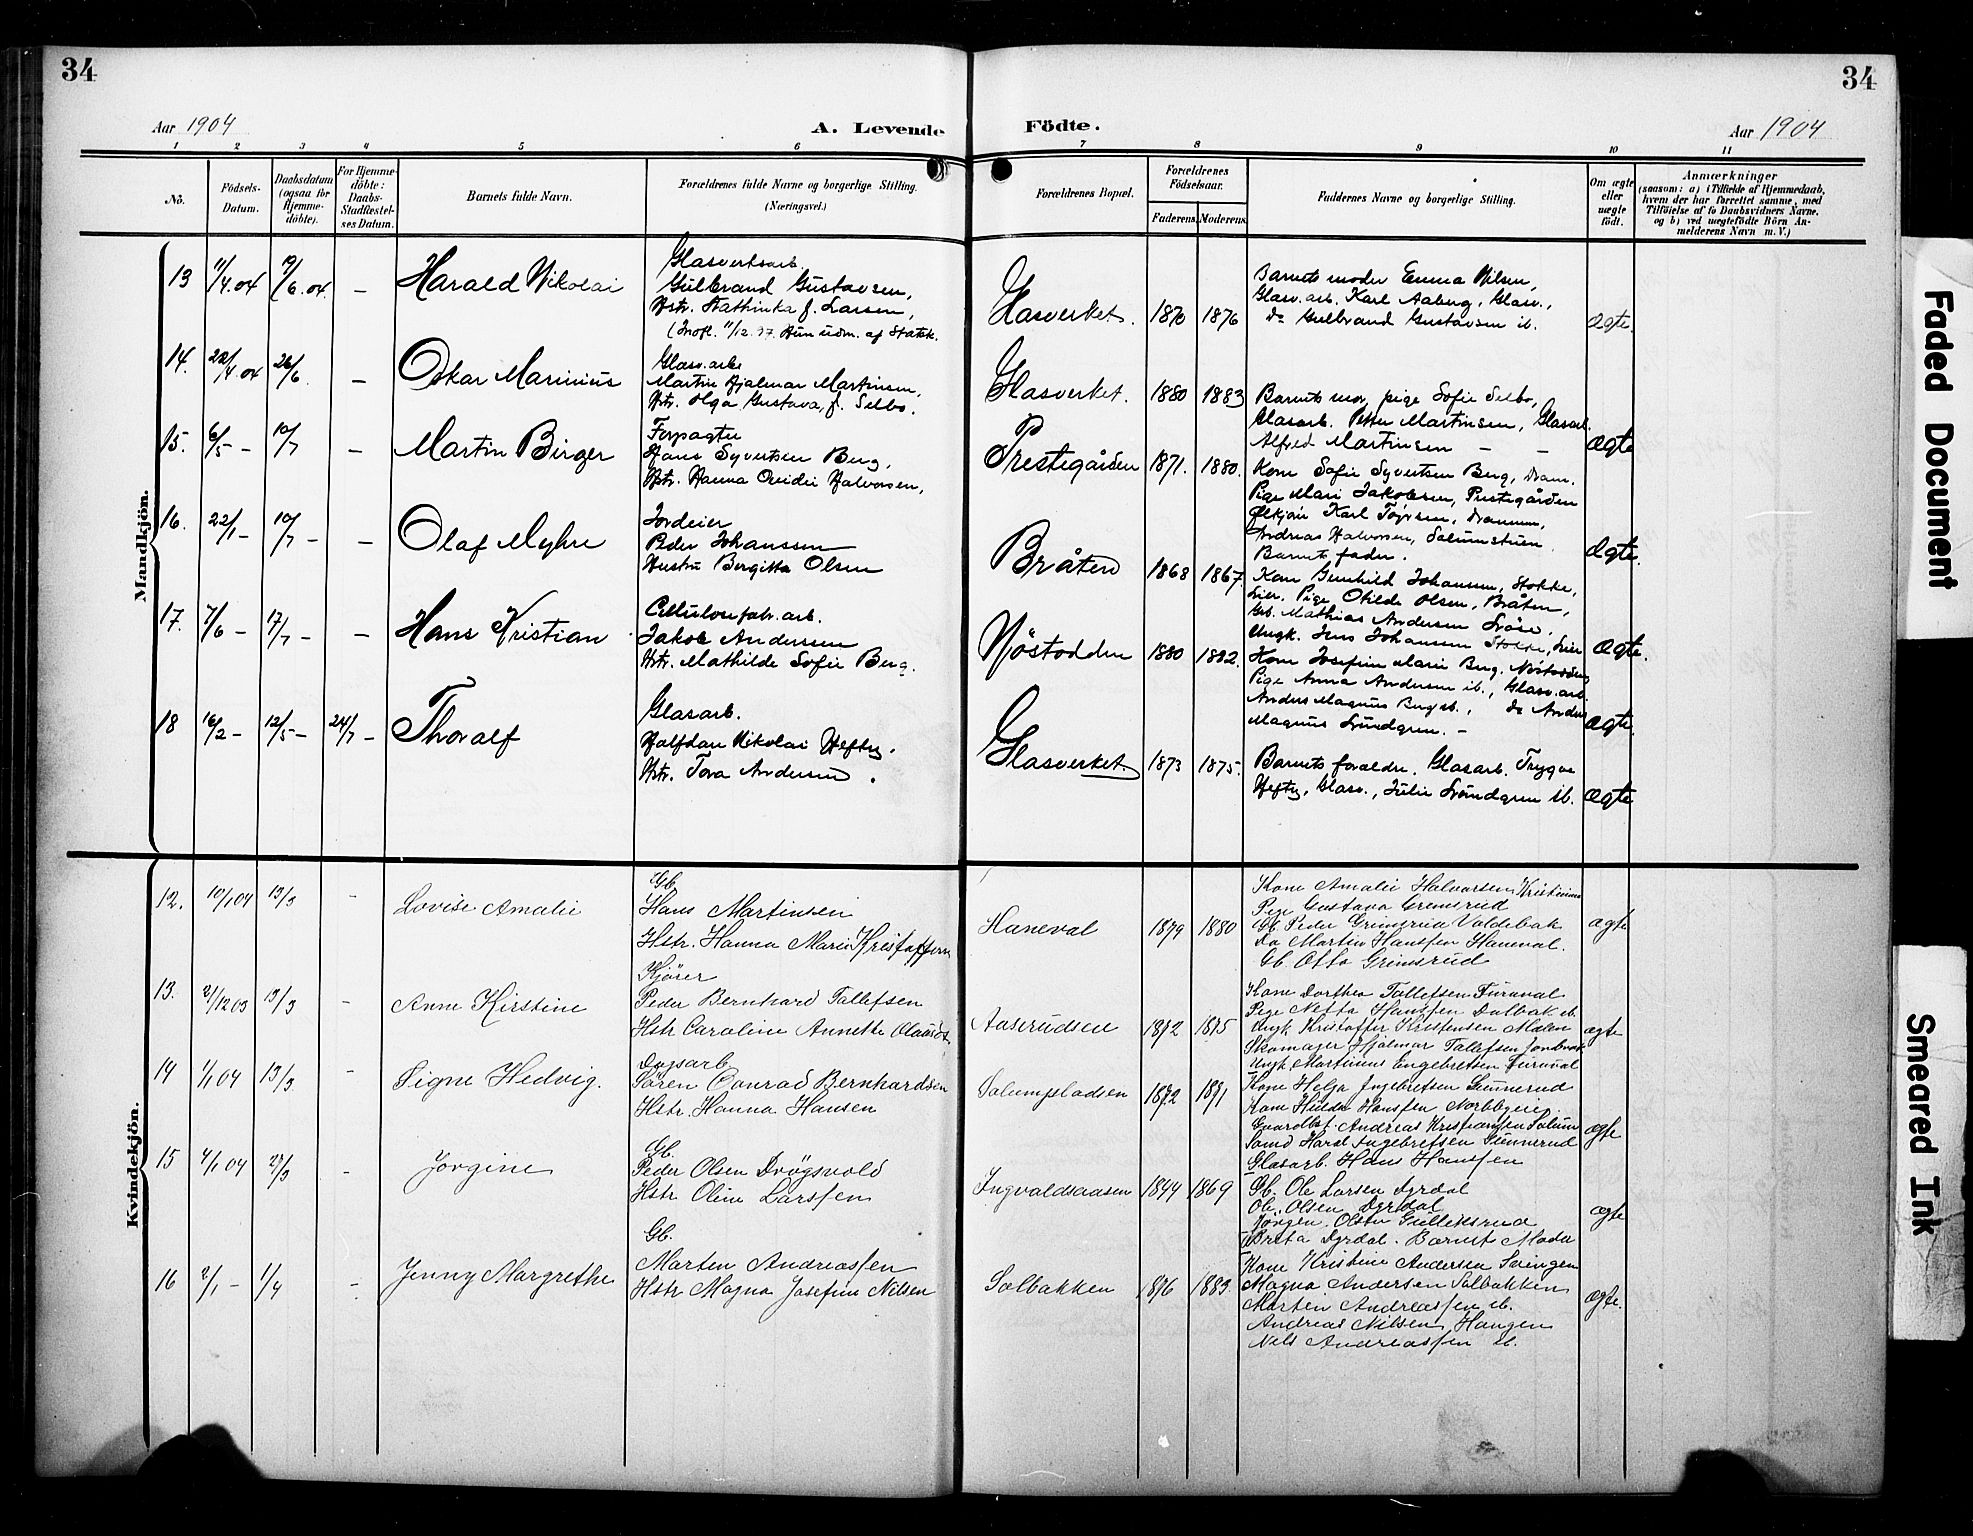 34
34
Aar 1904
A. Levende
Födte.
Aar 1904
1 2 3 4 5 6 7 8 9 10 11
No.
Födsels-
Datum.
Daabsdatum
(ogsaa for
Hjemme-
döbte).
For Hjemme-
döbte:
Daabs-
Stadfæstel-
ses Datum.
Barnets fulde Navn.
Forældrenes fulde Navne og borgerlige Stilling.
(Næringsvei.)
Forældrenes Bopæl.
Forældrenes
Födselsaar.
Faderens. Moderens.
Faddernes Navne og borgerlige Stilling.
Om ægte
eller
uægte
födt.
Anmærkninger
(saasom: a) i Tilfælde af Hjemmedaab,
hvem der har forrettet samme, med
Tilföielse af to Daabsvidners Navne,
og b) ved uægtefödte Börn An-
melderens Navn m. V.)
Mandkjön.
13 11/4.04 19/6.04. – Harald Nikolai
Glasverksarb.
Gulbrand Gustavsen,
Hstr. Kathinka f. Larsen,
Glasverket. 1870 1876
Barnets moder Emma Nilsen,
Glasv.arb. Karl Aaberg, Glasv.,
do Gulbrand Gustavsen ib.
ægte.
14. 22/4.04 26/6. – Oskar Marinius
Glasv.arb.
Martin Hjalmar Martinsen,
Hstr. Olga Gustava, f. Selbo.
Glasverket. 1880 1883
Barnets mor, pige Sofie Selbo,
Glasarb. Petter Martinsen, Glasarb.
Alfred Martinsen – –
ægte
15. 6/5 – 10/7 – Martin Birger
Forpagter
Hans Syvertsen Berg,
Hstr. Hanna Ovidie Halvorsen,
Prestegården 1871. 1880.
Kone Sofie Syvertsen Berg, Dram.
Pige Mari Jakobsen, Prestegården
Karl
Andreas Halvorsen,
Barnets fader.
ægte.
16. 22/1 – 10/7 – – Olaf Myhre
Jordeier
Peder Johanssen
Hustru Bergitta Olsen
Bråten 1868 1867.
Kone Gunhild Johansen, Stokke,
Lier. Pige Otilde Olsen, Bråten,
Gb. Mathias Andersen
Ungk. Jens Johansen Stokke, Lier
ægte.
17. 7/6 – 17/7 – – Hans Kristian
Cellulosefabr.arb.
Jakob Andersen
Hstr. Mathilde Sofie Berg.
Nöstodden 1880 1882.
Kone Josefine Marie Berg, Nöstodden
Pige Anna Andersen ib., Glasv.arb.
Anders Magnus Berg ib., do Anders
Magnus Lundgren. –
ægte.
18 16/2 – 12/5 – 24/7 – Thoralf
Glasarb.
Halfdan Nikolai Heftye.
Hstr. Tora Andersen.
Glasverket. 1873 1875.
Barnets forældre. Glasarb. Trygve
Heftye, Glasv., Julie Lundgren ib.
ægte
Kvindekjön.
12. 10/1 04 13/3 – Lovise Amalie
Gb.
Hans Martinsen
Hstr. Hanna Marie Kristoffersen
Haneval 1879 1880
Kone Amalie Halvorsen Kristiania
Pige Gustava Grimsrud
Gb. Peder Grimsrud Valdebak
Do Martin Hanssen Haneval.
Gb. Otto Grimsrud
ægte
13. 21/12 03 13/3 – Anne Kirstine
Kjörer
Peder Bernhard Tollefsen
Hstr Caroline Annette Olausd.
Aaserudsen 1872 1875
Kone Dorthea Tollefsen Furuval
Pige Netta Hanssen Dalbak ib
Ungk. Kristoffer Kristensen Moen
Skomager Hjalmar Tollefsen
Ungk. Martinius Engebretsen Furuval
ægte
14 1/1 04 13/3 – Signe Hedvig.
Dagsarb.
Sören Conrad Bernhardsen
Hstr. Hanna Hansen
Solumpladsen 1872 1871
Kone Helga Ingebretsen Gunnerud
Kone Hulda Hanssen
Gaardbr. Andreas Kristiansen Solum
Ingebretsen Gunnerud
Glasarb. Hans Hanssen
ægte
15 4/1 04 27/3 – Jörgine
Gb.
Peder Olsen Drögsvold
Hstr Oline Larssen
Ingvaldsaasen 1844 1869
Gb. Ole Larsen Dyrdal
Ole Olsen Dyrdal
Jörgen Olsen Gulliksrud
Berta Dyrdal. Barnets Moder
ægte
16 2/1 – 1/4 – Jenny Margrethe
Gb.
Marten Andreassen
Hstr Magna Josefine Nilsen
Solbakken 1876 1883.
Kone Kristine Andersen Svingen
Magna Andersen Solbakken
Marten Andreassen ib.
Andreas Nilsen, Haugen
Nils Andreassen ib.
ægte.
Faded Document
Smeared Ink